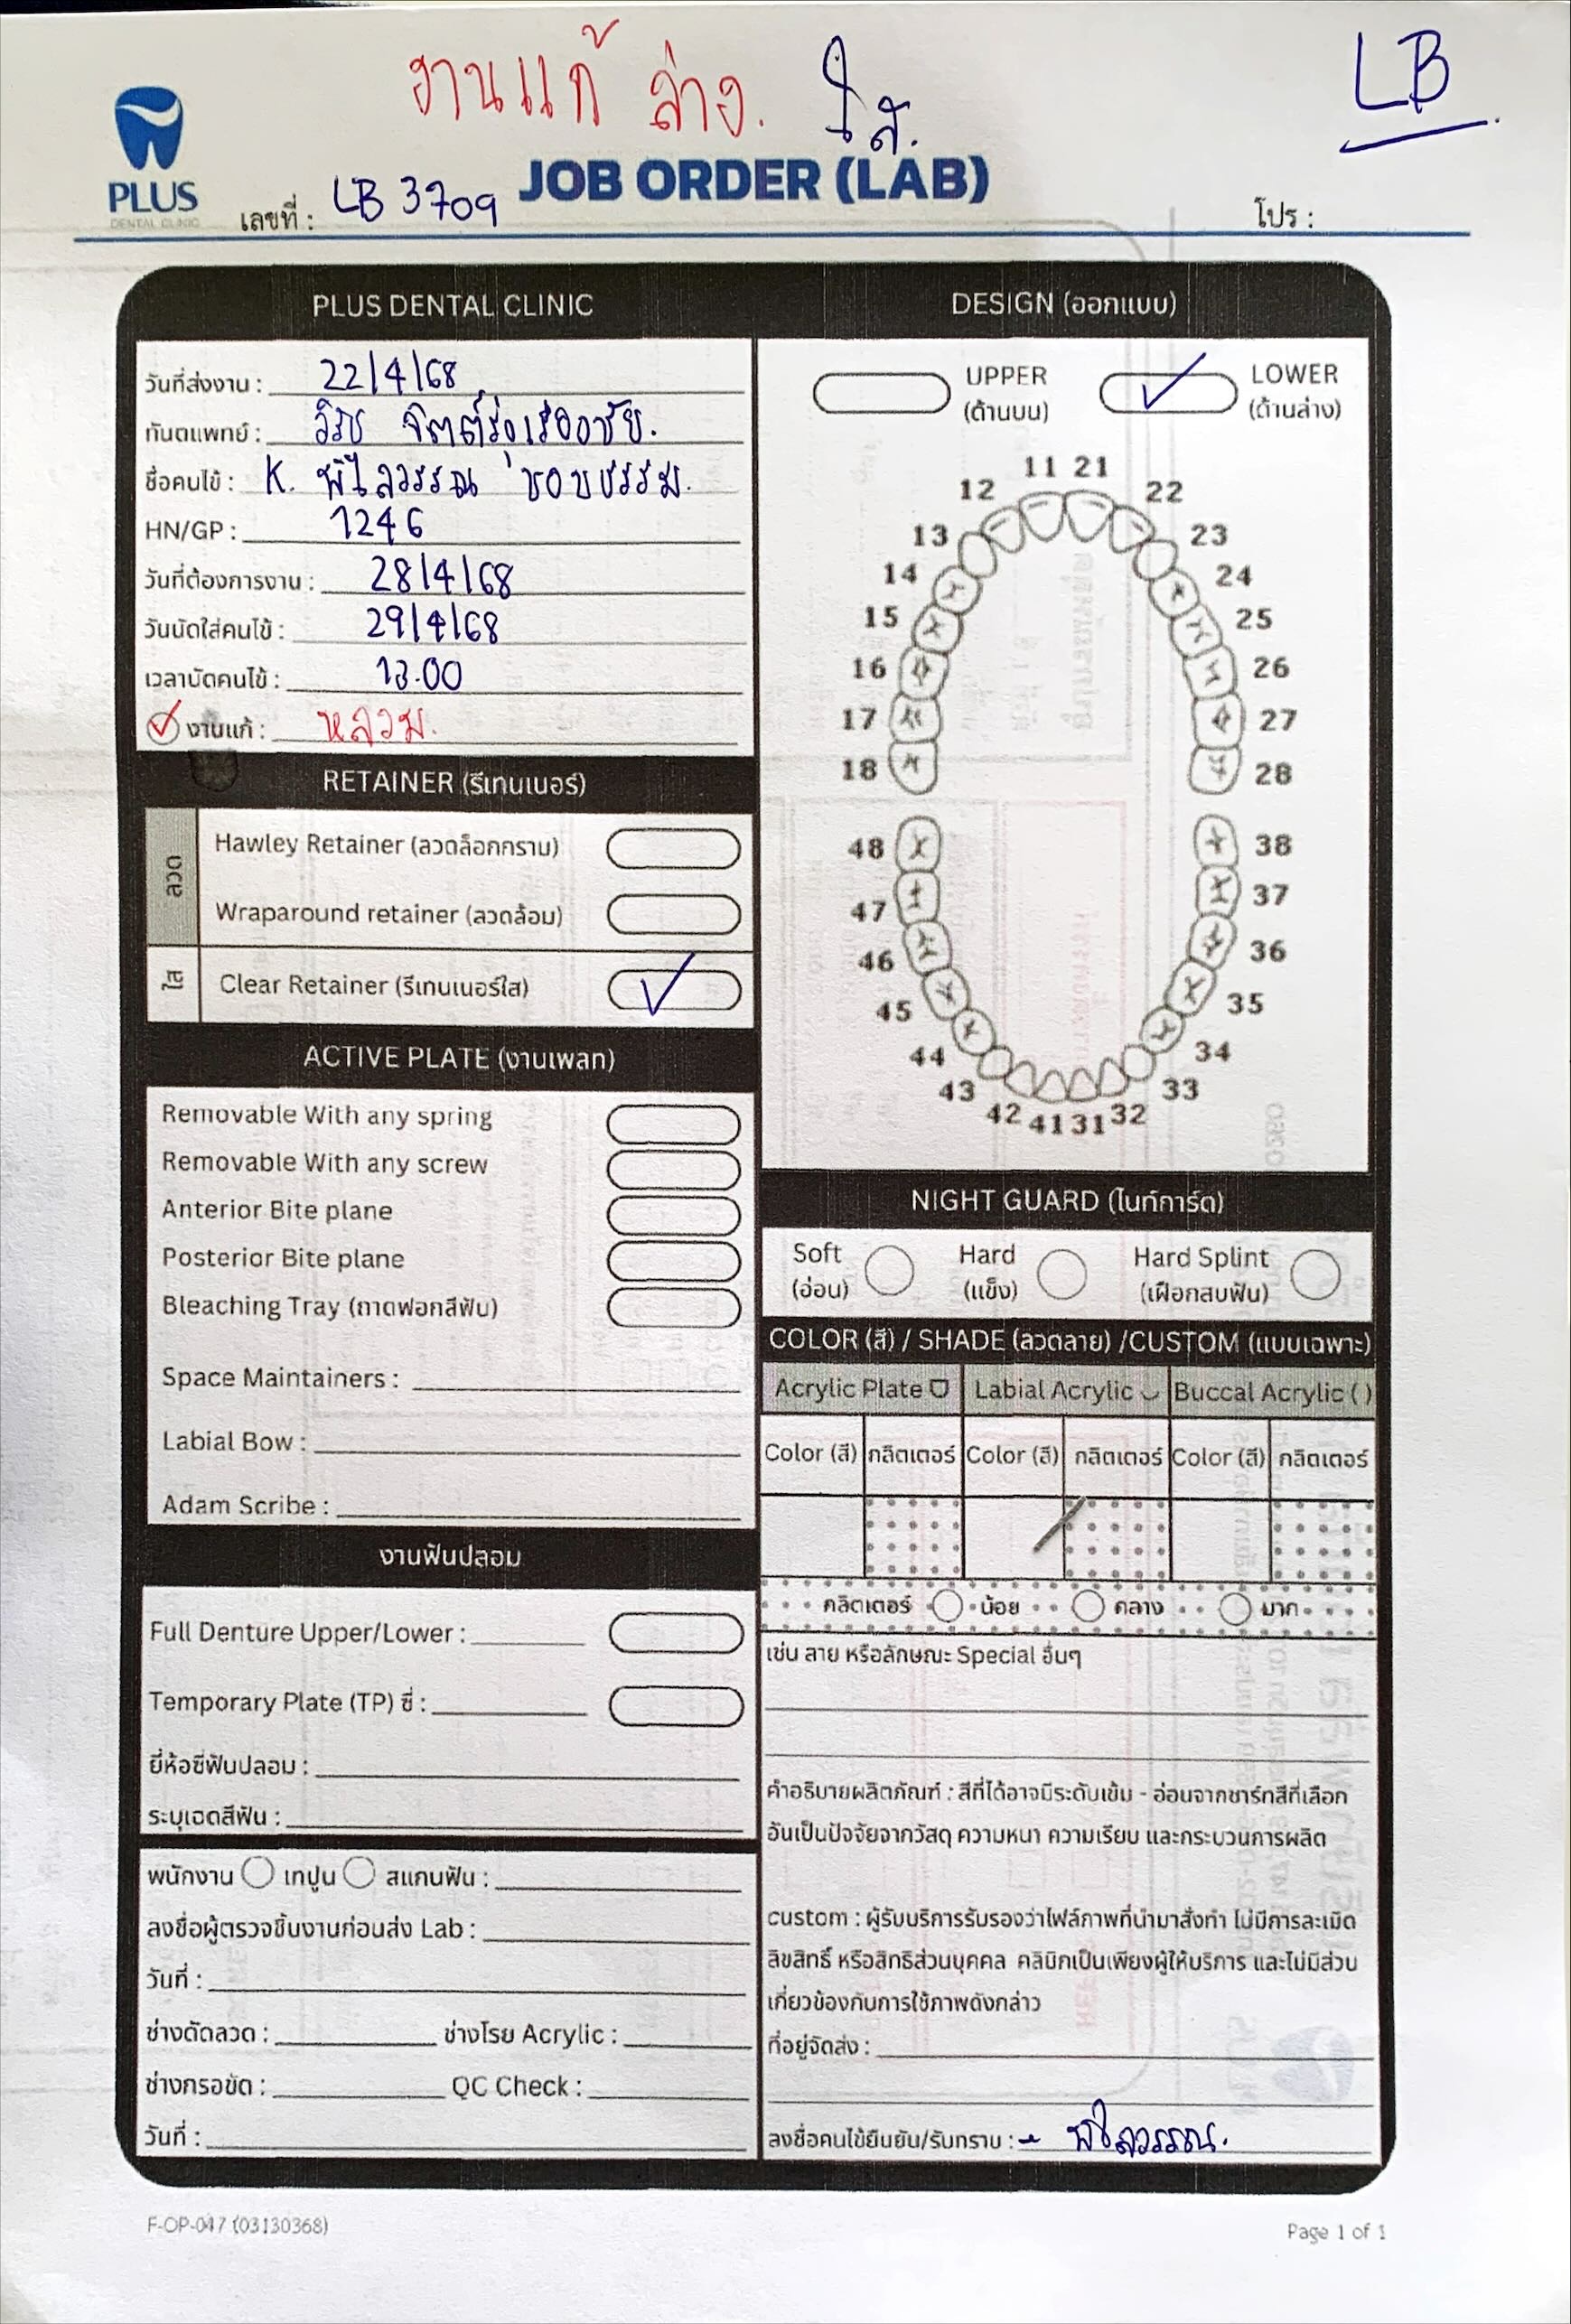 งานแก้ ล่าง. ใส.
LB
PLUS
DENTAL CLINIC
เลขที่ : LB 3709
JOB ORDER (LAB)
โปร :
PLUS DENTAL CLINIC
วันที่ส่งงาน : 22/4/68
ทันตแพทย์ : วิรัช จิตต์รุ่งเรืองชัย.
ชื่อคนไข้ : K. พิไลวรรณ ชอบธรรม.
HN/GP : 1246
วันที่ต้องการงาน : 28/4/68
วันนัดใส่คนไข้ : 29/4/68
เวลานัดคนไข้ : 13.00
งานแก้ : หลวม.
RETAINER (รีเทนเนอร์)
ลวด
Hawley Retainer (ลวดล็อกกราม)
Wraparound retainer (ลวดล้อม)
ใส
Clear Retainer (รีเทนเนอร์ใส)
ACTIVE PLATE (งานเพลท)
Removable With any spring
Removable With any screw
Anterior Bite plane
Posterior Bite plane
Bleaching Tray (ถาดฟอกสีฟัน)
Space Maintainers :
Labial Bow :
Adam Scribe :
งานฟันปลอม
Full Denture Upper/Lower :
Temporary Plate (TP) ซี่ :
ยี่ห้อซี่ฟันปลอม :
ระบุเฉดสีฟัน :
พนักงาน เทปูน สแกนฟัน :
ลงชื่อผู้ตรวจชิ้นงานก่อนส่ง Lab :
วันที่ :
ช่างดัดลวด : ช่างโรย Acrylic :
ช่างกรอขัด : QC Check :
วันที่ :
DESIGN (ออกแบบ)
UPPER LOWER
(ด้านบน) (ด้านล่าง)
11 21
12 22
13 23
14 24
15 25
16 26
17 27
18 28
48 38
47 37
46 36
45 35
44 34
43 33
42 41 31 32
NIGHT GUARD (ไนท์การ์ด)
Soft Hard Hard Splint
(อ่อน) (แข็ง) (เฝือกสบฟัน)
COLOR (สี) / SHADE (ลวดลาย) /CUSTOM (แบบเฉพาะ)
Acrylic Plate Labial Acrylic Buccal Acrylic ( )
Color (สี) กลิตเตอร์ Color (สี) กลิตเตอร์ Color (สี) กลิตเตอร์
กลิตเตอร์ น้อย กลาง มาก
เช่น ลาย หรือลักษณะ Special อื่นๆ
คำอธิบายผลิตภัณฑ์ : สีที่ได้อาจมีระดับเข้ม - อ่อนจากชาร์ทสีที่เลือก
อันเป็นปัจจัยจากวัสดุ ความหนา ความเรียบ และกระบวนการผลิต
custom : ผู้รับบริการรับรองว่าไฟล์ภาพที่นำมาสั่งทำ ไม่มีการละเมิด
ลิขสิทธิ์ หรือสิทธิส่วนบุคคล คลินิกเป็นเพียงผู้ให้บริการ และไม่มีส่วน
เกี่ยวข้องกับการใช้ภาพดังกล่าว
ที่อยู่จัดส่ง :
ลงชื่อคนไข้ยืนยัน/รับทราบ : พิไลวรรณ.
F-OP-047 (03130368)
Page 1 of 1